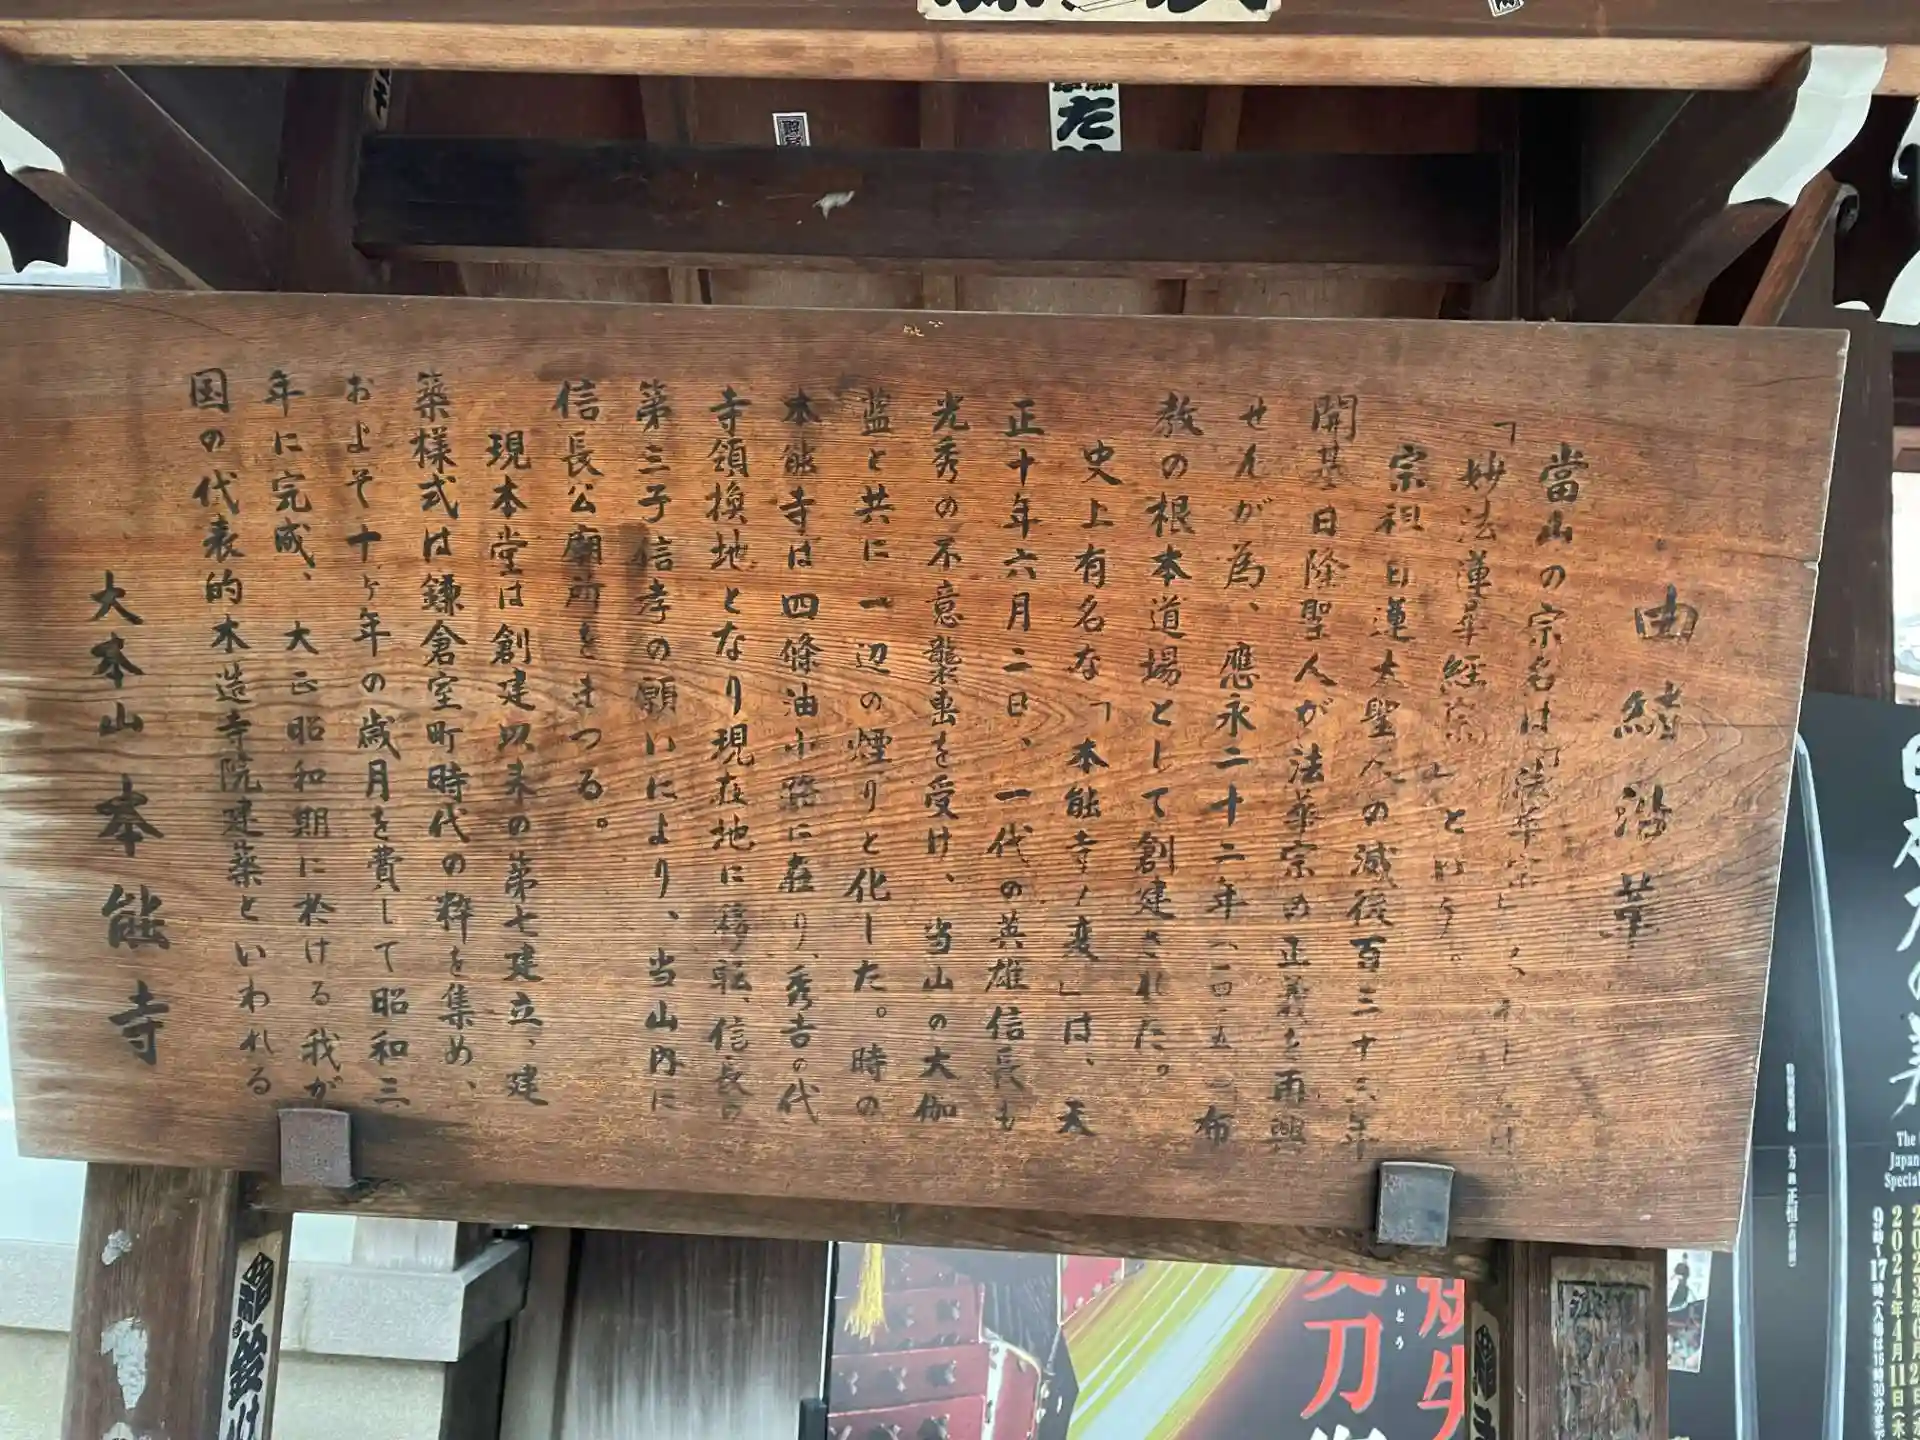 由緒沿革
當山の宗名は「法華宗」くわしくは
「妙法蓮華経宗」という。
宗祖日蓮大聖人の滅後百三十三年
開基日隆聖人が法華宗の正義を再興
せんが為、應永二十二年(一四一五)布
教の根本道場として創建された。
史上有名な「本能寺ノ変」は、天
正十年六月二日、一代の英雄信長も
光秀の不意襲撃を受け、当山の大伽
藍と共に一辺の煙りと化した。時の
本能寺は四條油小路に在り、秀吉の代
寺領換地となり現在地に移転、信長の
第三子信孝の願いにより、当山内に
信長公廟所をまつる。
現本堂は創建以来の第七建立、建
築様式は鎌倉室町時代の粋を集め、
およそ十ヶ年の歳月を費して昭和三
年に完成、大正昭和期に於ける我が
国の代表的木造寺院建築といわれる
大本山本能寺
た
日本刀の美
The
Japan
Special
2023年6月2日
2024年4月11日(木
9時~17時(入場は16時30分まで
刀
いとう
焼失
鈴